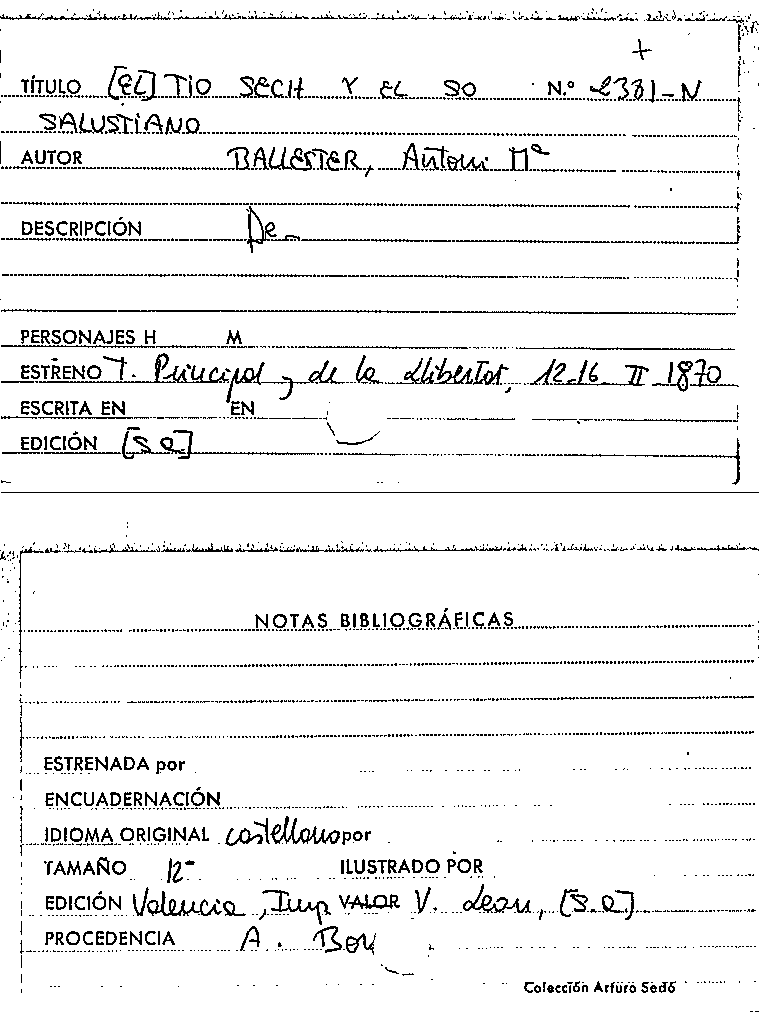 +
TÍTULO [EL] TIO SECH Y EL SO N.º 2381-N
SALUSTIANO
AUTOR BALLESTER, Antoni Mª
DESCRIPCIÓN De
PERSONAJES H M
ESTRENO T. Principal y de la Llibertat, 12-16 II 1870
ESCRITA EN EN
EDICIÓN [s.a]
NOTAS BIBLIOGRÁFICAS
ESTRENADA por
ENCUADERNACIÓN
IDIOMA ORIGINAL castellano por
TAMAÑO 12º ILUSTRADO POR
EDICIÓN Valencia, Imp VALOR V. Leon, [s.a.]
PROCEDENCIA A. Boy
Colección Arturo Sedó